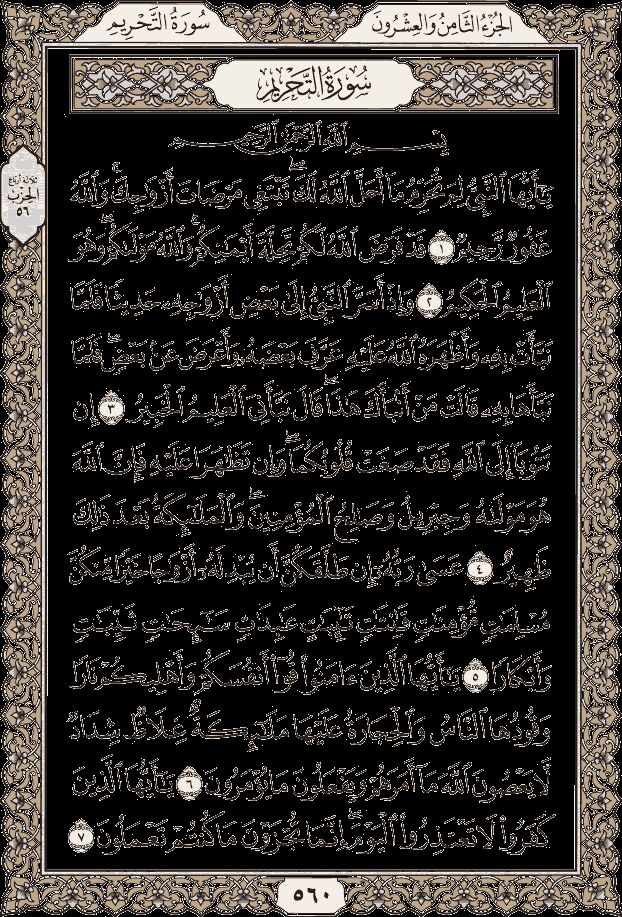 الجُزْءُ الثَّامِنُ وَالعِشْرُونَ
سُورَةُ التَّحْرِيمِ
سُورَةُ التَّحْرِيمِ
بِسْمِ ٱللَّهِ ٱلرَّحْمَٰنِ ٱلرَّحِيمِ
يَٰٓأَيُّهَا ٱلنَّبِيُّ لِمَ تُحَرِّمُ مَآ أَحَلَّ ٱللَّهُ لَكَۖ تَبْتَغِي مَرْضَاتَ أَزْوَٰجِكَۚ وَٱللَّهُ
غَفُورٌ رَّحِيمٌ ١ قَدْ فَرَضَ ٱللَّهُ لَكُمْ تَحِلَّةَ أَيْمَٰنِكُمْۚ وَٱللَّهُ مَوْلَىٰكُمْۖ وَهُوَ
ٱلْعَلِيمُ ٱلْحَكِيمُ ٢ وَإِذْ أَسَرَّ ٱلنَّبِيُّ إِلَىٰ بَعْضِ أَزْوَٰجِهِۦ حَدِيثًا فَلَمَّا
نَبَّأَتْ بِهِۦ وَأَظْهَرَهُ ٱللَّهُ عَلَيْهِ عَرَّفَ بَعْضَهُۥ وَأَعْرَضَ عَنۢ بَعْضٍۖ فَلَمَّا
نَبَّأَهَا بِهِۦ قَالَتْ مَنْ أَنۢبَأَكَ هَٰذَاۖ قَالَ نَبَّأَنِيَ ٱلْعَلِيمُ ٱلْخَبِيرُ ٣ إِن
تَتُوبَآ إِلَى ٱللَّهِ فَقَدْ صَغَتْ قُلُوبُكُمَاۖ وَإِن تَظَٰهَرَا عَلَيْهِ فَإِنَّ ٱللَّهَ
هُوَ مَوْلَىٰهُ وَجِبْرِيلُ وَصَٰلِحُ ٱلْمُؤْمِنِينَۖ وَٱلْمَلَٰٓئِكَةُ بَعْدَ ذَٰلِكَ
ظَهِيرٌ ٤ عَسَىٰ رَبُّهُۥٓ إِن طَلَّقَكُنَّ أَن يُبْدِلَهُۥٓ أَزْوَٰجًا خَيْرًا مِّنكُنَّ
مُسْلِمَٰتٍ مُّؤْمِنَٰتٍ قَٰنِتَٰتٍ تَٰٓئِبَٰتٍ عَٰبِدَٰتٍ سَٰٓئِحَٰتٍ ثَيِّبَٰتٍ
وَأَبْكَارًا ٥ يَٰٓأَيُّهَا ٱلَّذِينَ ءَامَنُوا۟ قُوٓا۟ أَنفُسَكُمْ وَأَهْلِيكُمْ نَارًا
وَقُودُهَا ٱلنَّاسُ وَٱلْحِجَارَةُ عَلَيْهَا مَلَٰٓئِكَةٌ غِلَاظٌ شِدَادٌ
لَّا يَعْصُونَ ٱللَّهَ مَآ أَمَرَهُمْ وَيَفْعَلُونَ مَا يُؤْمَرُونَ ٦ يَٰٓأَيُّهَا ٱلَّذِينَ
كَفَرُوا۟ لَا تَعْتَذِرُوا۟ ٱلْيَوْمَۖ إِنَّمَا تُجْزَوْنَ مَا كُنتُمْ تَعْمَلُونَ ٧
ثلاثة أرباع
الحزب
٥٦
٥٦٠